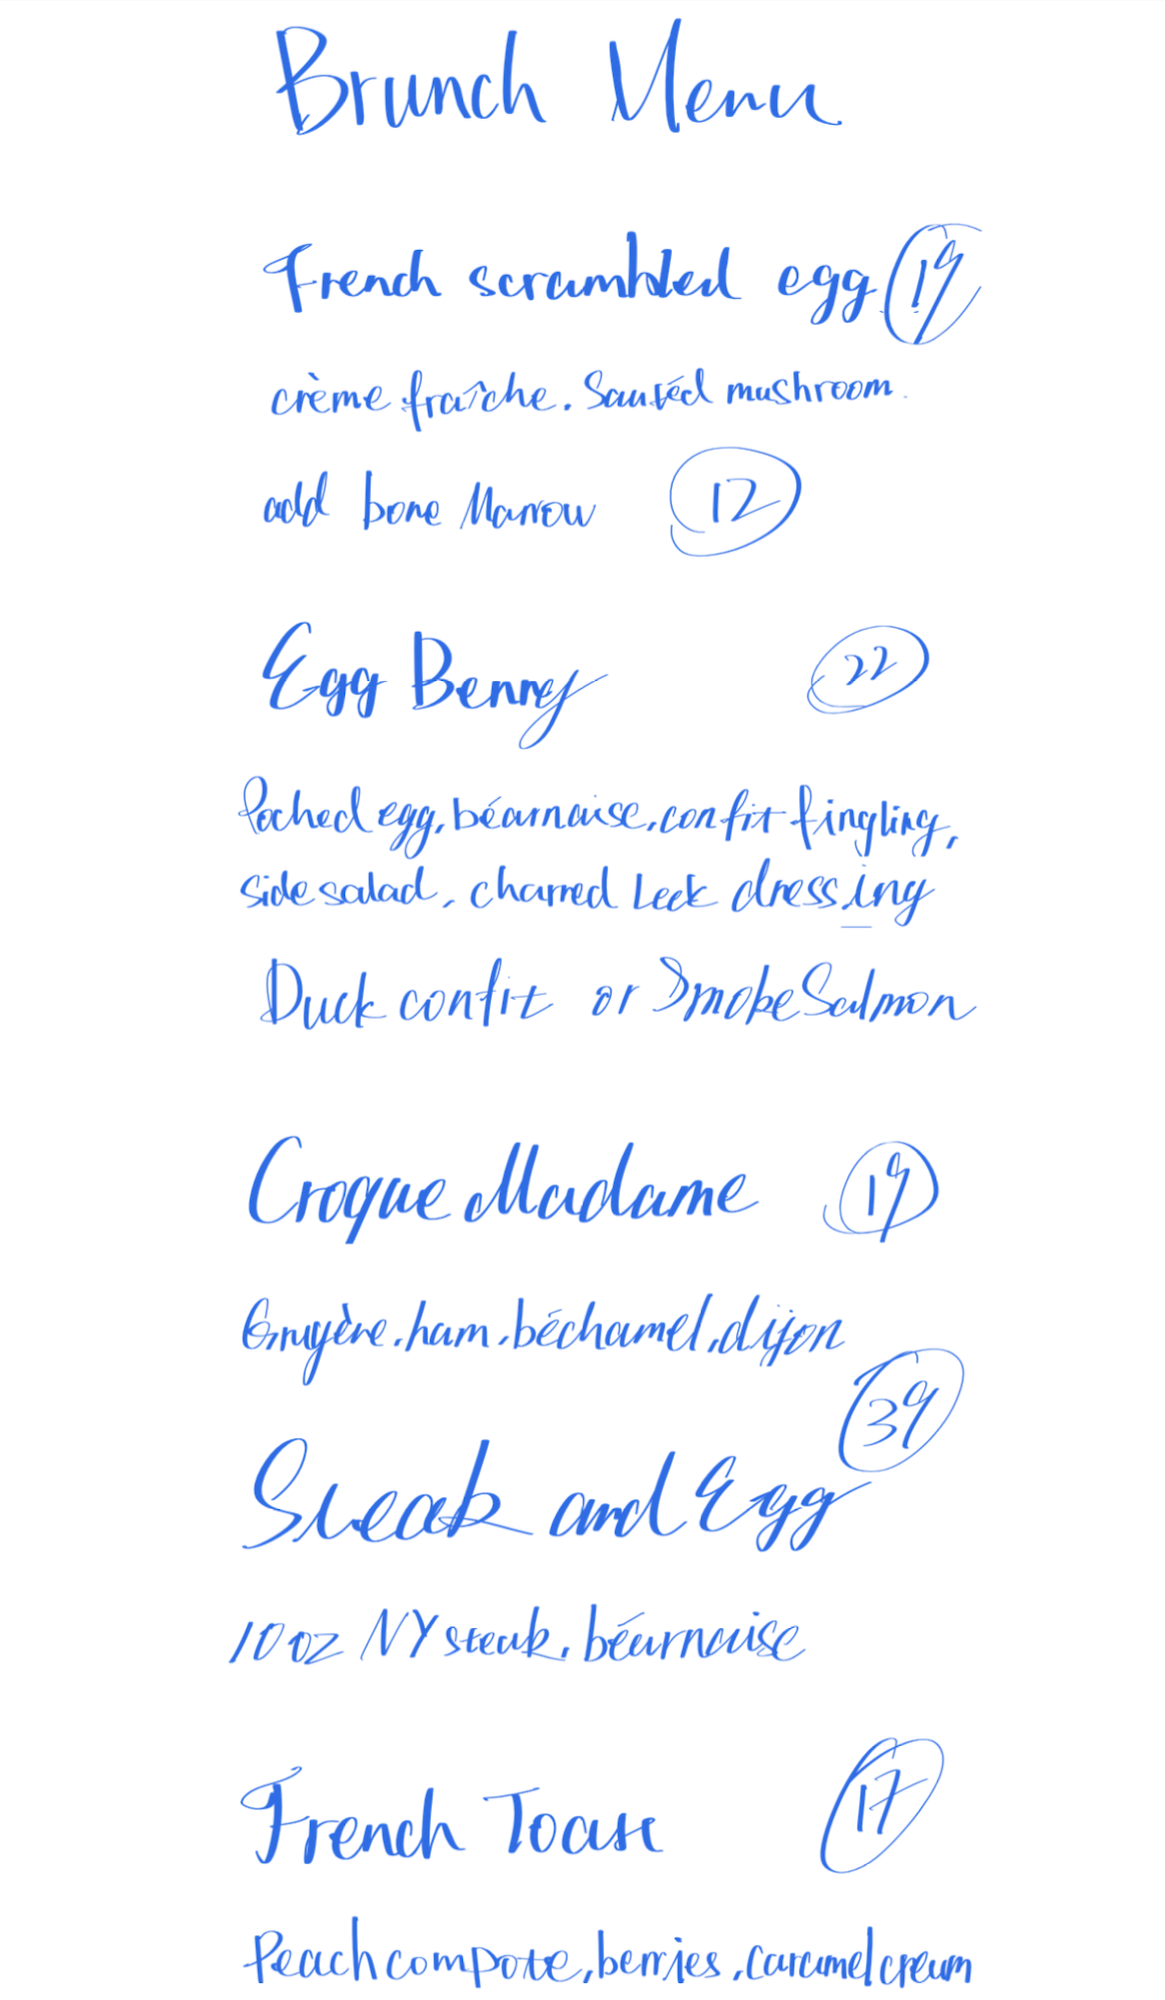 Brunch Menu
French scrambled egg 19
crème fraîche. Sautéd mushroom.
add bone Marrow 12
Egg Benny 22
Poched egg, béarnaise, confit fingling,
side salad, charred Leek dressing
Duck confit or Smoke Salmon
Croque Madame 19
Gruyère, ham, béchamel, dijon
39
Steak and Egg
10 oz NY steak, béarnaise
French Toast 17
Peach compote, berries, caramel cream